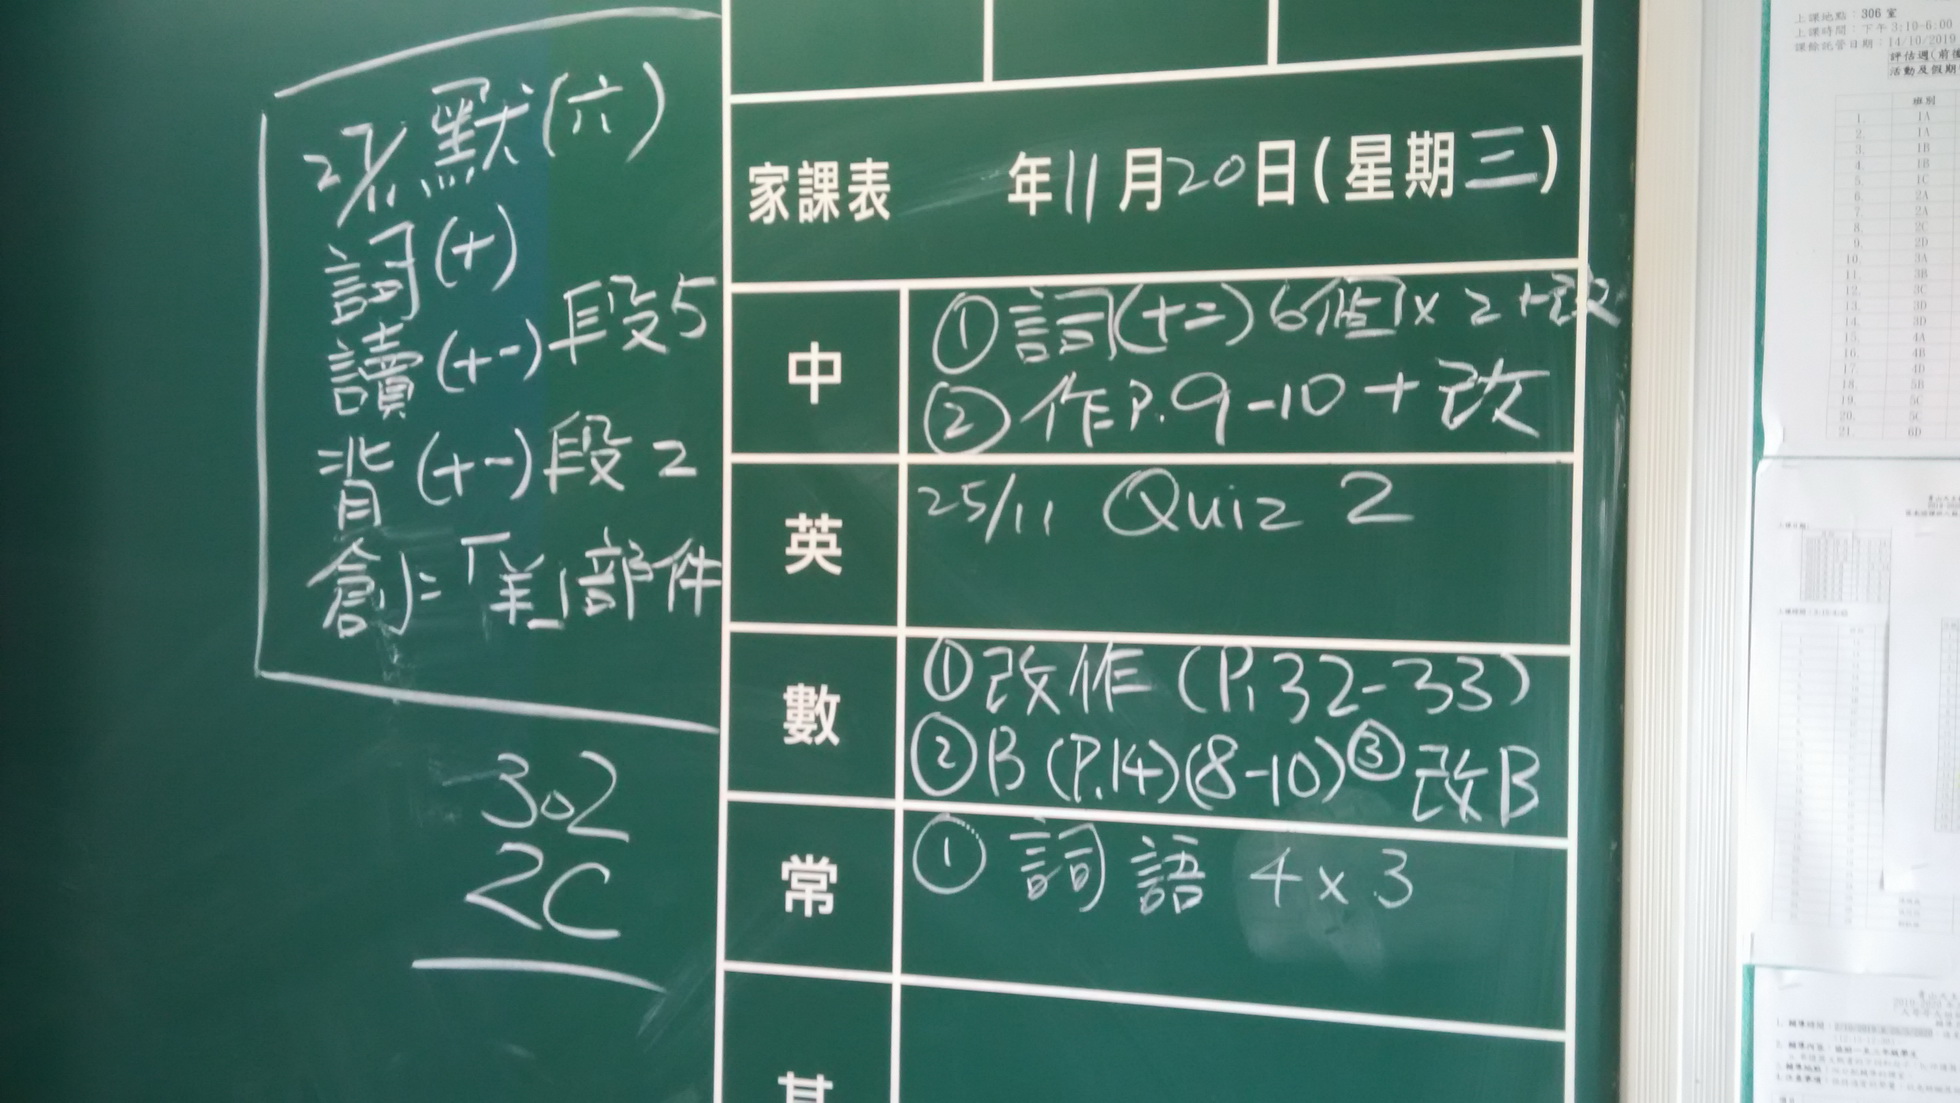 27/11 默(六)
詞(十)
讀(十一)段5
背(十一)段2
創:「⺷」部件
302
2C
家課表 年11月20日(星期三)
中
①詞(十二)6個×2+改
②作P.9-10+改
英
25/11 Quiz 2
數
①改作(P.32-33)
②B(P.14)(8-10)③改B
常
①詞語 4×3
其
上課地點：306 室
上課時間：下午 3:10-6:00
課餘託管日期：14/10/2019
評估週(前後
活動及假期
班別
1. 1A
2. 1A
3. 1B
4. 1B
5. 1C
6. 2A
7. 2A
8. 2C
9. 2D
10. 3A
11. 3B
12. 3C
13. 3D
14. 3D
15. 4A
16. 4B
17. 4D
18. 5B
19. 5C
20. 5C
21. 6D